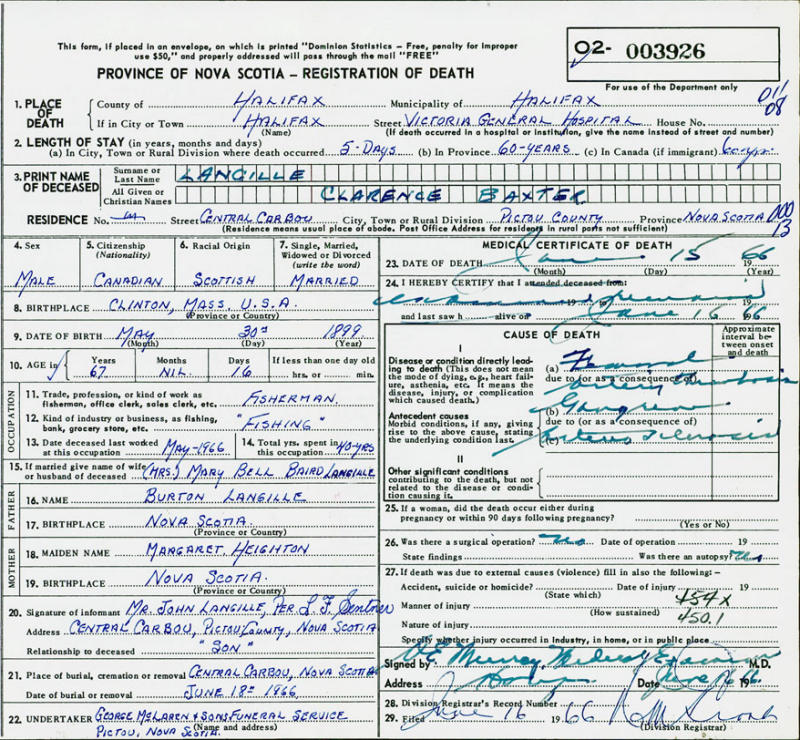 This form, if placed in an envelope, on which is printed "Dominion Statistics – Free, penalty for improper
use $50," and properly addressed will pass through the mail "FREE"
PROVINCE OF NOVA SCOTIA – REGISTRATION OF DEATH
02- 003926
For use of the Department only
1. PLACE OF DEATH County of HALIFAX Municipality of HALIFAX 01/
If in City or Town HALIFAX Street VICTORIA GENERAL HOSPITAL House No. 08
(Name) (If death occurred in a hospital or institution, give the name instead of street and number)
2. LENGTH OF STAY (in years, months and days)
(a) In City, Town or Rural Division where death occurred 5-DAYS (b) In Province 60-YEARS (c) In Canada (if immigrant) 60-yrs.
3. PRINT NAME OF DECEASED Surname or Last Name LANGILLE
All Given or Christian Names CLARENCE BAXTER
RESIDENCE No. Street CENTRAL CARBOU City, Town or Rural Division PICTOU COUNTY Province NOVA SCOTIA 000
(Residence means usual place of abode. Post Office Address for residents in rural parts not sufficient) 13
4. Sex 5. Citizenship (Nationality) 6. Racial Origin 7. Single, Married, Widowed or Divorced (write the word)
MALE CANADIAN SCOTTISH MARRIED
8. BIRTHPLACE CLINTON, MASS. U.S.A.
(Province or Country)
9. DATE OF BIRTH MAY 30th 1899
(Month) (Day) (Year)
10. AGE in Years Months Days If less than one day old
67 NIL 16 hrs. or min.
OCCUPATION
11. Trade, profession, or kind of work as fisherman, office clerk, sales clerk, etc. FISHERMAN
12. Kind of industry or business, as fishing, bank, grocery store, etc. "FISHING"
13. Date deceased last worked at this occupation MAY-1966 14. Total yrs. spent in this occupation 40-YRS
15. If married give name of wife or husband of deceased (MRS.) MARY BELL BAIRD LANGILLE
FATHER
16. NAME BURTON LANGILLE
17. BIRTHPLACE NOVA SCOTIA
(Province or Country)
MOTHER
18. MAIDEN NAME MARGARET HEIGHTON
19. BIRTHPLACE NOVA SCOTIA.
(Province or Country)
20. Signature of informant MR. JOHN LANGILLE, PER
Address CENTRAL CARBOU, PICTOU COUNTY, NOVA SCOTIA
Relationship to deceased "SON"
21. Place of burial, cremation or removal CENTRAL CARBOU, NOVA SCOTIA
Date of burial or removal JUNE 18th 1966
22. UNDERTAKER GEORGE McLAREN & SONS FUNERAL SERVICE
PICTOU, NOVA SCOTIA (Name and address)
MEDICAL CERTIFICATE OF DEATH
23. DATE OF DEATH June 15 1966
(Month) (Day) (Year)
24. I HEREBY CERTIFY that I attended deceased from:
19 19
and last saw h alive on June 16 1966
CAUSE OF DEATH
Approximate interval between onset and death
I
Disease or condition directly leading to death (This does not mean the mode of dying, e.g., heart failure, asthenia, etc. It means the disease, injury, or complication which caused death.)
(a) Femoral
due to (or as a consequence of)
artery thrombosis
Antecedent causes
Morbid conditions, if any, giving rise to the above cause, stating the underlying condition last.
(b) Gangrene
due to (or as a consequence of)
(c) Arterio Sclerosis
II
Other significant conditions
contributing to the death, but not related to the disease or condition causing it.
25. If a woman, did the death occur either during
pregnancy or within 90 days following pregnancy?
(Yes or No)
26. Was there a surgical operation? No Date of operation 19
State findings Was there an autopsy?
27. If death was due to external causes (violence) fill in also the following:–
Accident, suicide or homicide? Date of injury 19
(State which) 454x
Manner of injury (How sustained) 450.1
Nature of injury
Specify whether injury occurred in industry, in home, or in public place
Signed by Murray Medical Examiner M.D.
Address Date June 16 1966
28. Division Registrar's Record Number
29. Filed June 16 1966
(Division Registrar)